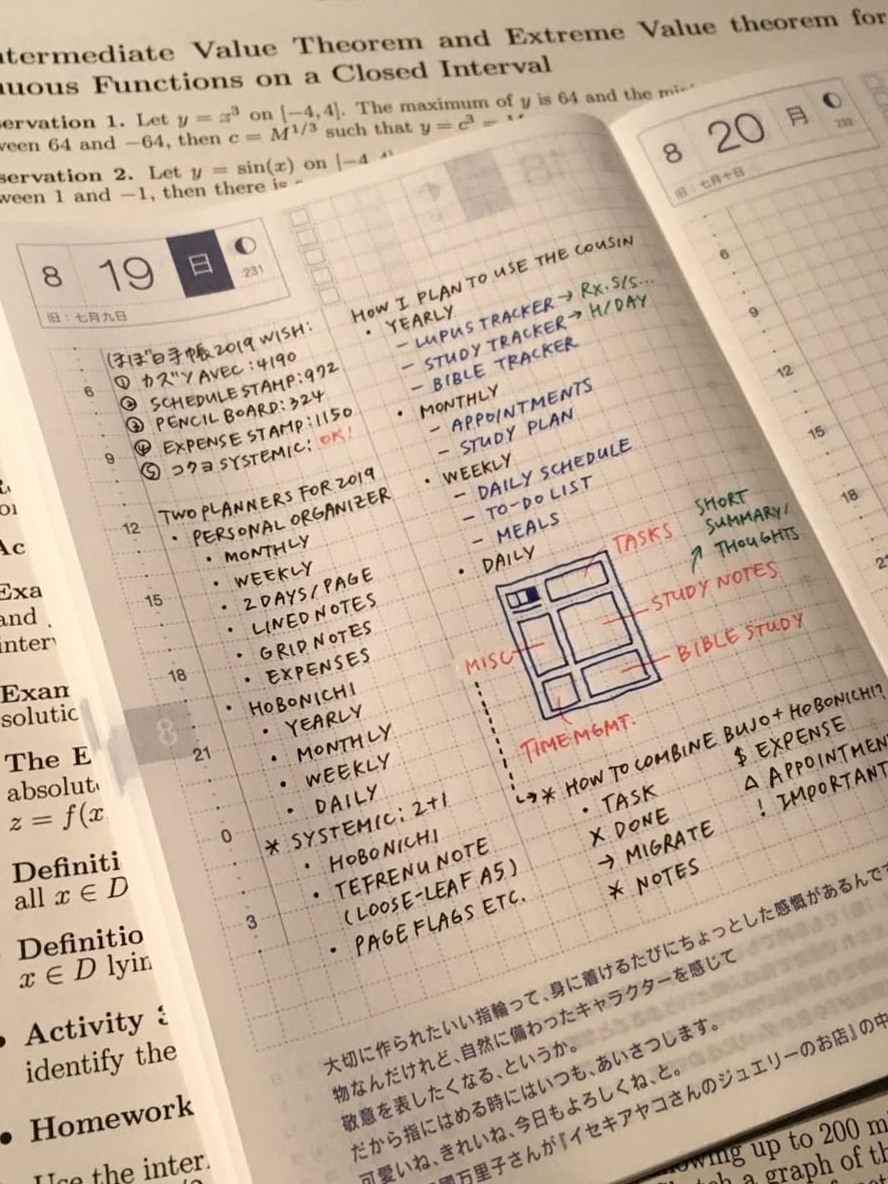 ntermediate Value Theorem and Extreme Value theorem for
uous Functions on a Closed Interval
servation 1. Let y = x³ on [−4, 4]. The maximum of y is 64 and the
ween 64 and −64, then c = M^1/3 such that y = c³ =
servation 2. Let y = sin(x) on [−4
ween 1 and −1, then there is
8 19 日 231
旧：七月九日
ほぼ日手帳2019 WISH:
① カズン AVEC: 4190
② SCHEDULE STAMP: 972
③ PENCIL BOARD: 324
④ EXPENSE STAMP: 1150
⑤ コクヨ SYSTEMIC: OK!
TWO PLANNERS FOR 2019
• PERSONAL ORGANIZER
• MONTHLY
• WEEKLY
• 2 DAYS/PAGE
• LINED NOTES
• GRID NOTES
• EXPENSES
• HOBONICHI
• YEARLY
• MONTHLY
• WEEKLY
• DAILY
* SYSTEMIC: 2+1
• HOBONICHI
• TEFRENU NOTE
(LOOSE-LEAF A5)
• PAGE FLAGS ETC.
6
9
12
15
18
21
0
3
8
HOW I PLAN TO USE THE COUSIN
• YEARLY
– LUPUS TRACKER → Rx. S/S...
– STUDY TRACKER → H/DAY
– BIBLE TRACKER
• MONTHLY
– APPOINTMENTS
– STUDY PLAN
• WEEKLY
– DAILY SCHEDULE
– TO-DO LIST
– MEALS
• DAILY
TASKS
SHORT
SUMMARY/
THOUGHTS
STUDY NOTES
MISC
BIBLE STUDY
TIME MGMT.
* HOW TO COMBINE BUJO + HOBONICHI?
• TASK
X DONE
→ MIGRATE
* NOTES
$ EXPENSE
△ APPOINTMEN
! IMPORTANT
大切に作られたいい指輪って、身に着けるたびにちょっとした感慨があるんです
物なんだけれど、自然に備わったキャラクターを感じて
敬意を表したくなる、というか。
だから指にはめる時にはいつも、あいさつします。
可愛いね、きれいね、今日もよろしくね、と。
万里子さんが『イセキアヤコさんのジュエリーのお店』の中
8 20 月 232
旧：七月十日
6
9
12
15
18
21
Ac
Exa
and
inter
Exam
solutic
The E
absolut
z = f(x
Definiti
all x ∈ D
Definitio
x ∈ D lyin
• Activity
identify the
• Homework
Use the inter
wing up to 200 m
a graph of th